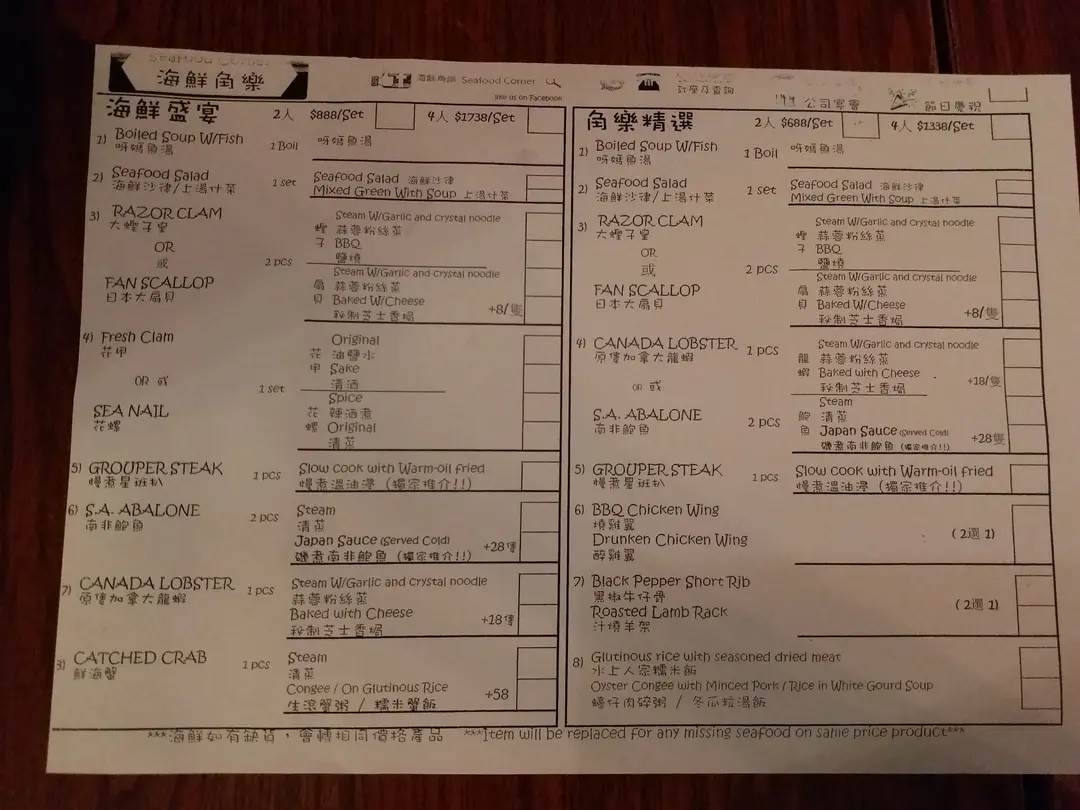 Seafood Corner
海鮮角樂
海鮮角樂 Seafood Corner
like us on Facebook
訂座及查詢
公司宴會
節日慶祝
海鮮盛宴 2人 $888/Set 4人 $1738/Set
1) Boiled Soup W/Fish
呀媽魚湯
1 Boil
呀媽魚湯
2) Seafood Salad
海鮮沙律/上湯什菜
1 set
Seafood Salad 海鮮沙律
Mixed Green With Soup 上湯什菜
3) RAZOR CLAM
大蟶子皇
OR
或
FAN SCALLOP
日本大扇貝
2 pcs
蟶子
Steam W/Garlic and crystal noodle
蒜蓉粉絲蒸
BBQ
鹽燒
扇貝
Steam W/Garlic and crystal noodle
蒜蓉粉絲蒸
Baked W/Cheese
秘制芝士香焗
+8/隻
4) Fresh Clam
花甲
OR 或
SEA NAIL
花螺
1 set
花甲
Original
油鹽水
Sake
清酒
花螺
Spice
辣酒煮
Original
清蒸
5) GROUPER STEAK
慢煮星班扒
1 pcs
Slow cook with Warm-oil fried
慢煮溫油浸 (獨家推介!!)
6) S.A. ABALONE
南非鮑魚
2 pcs
Steam
清蒸
Japan Sauce (Served Cold)
磯煮南非鮑魚 (獨家推介!!)
+28隻
7) CANADA LOBSTER
原隻加拿大龍蝦
1 pcs
Steam W/Garlic and crystal noodle
蒜蓉粉絲蒸
Baked with Cheese
秘制芝士香焗
+18隻
8) CATCHED CRAB
鮮海蟹
1 pcs
Steam
清蒸
Congee / On Glutinous Rice
生滾蟹粥 / 糯米蟹飯
+58
角樂精選 2人 $688/Set 4人 $1338/Set
1) Boiled Soup W/Fish
呀媽魚湯
1 Boil
呀媽魚湯
2) Seafood Salad
海鮮沙律/上湯什菜
1 set
Seafood Salad 海鮮沙律
Mixed Green With Soup 上湯什菜
3) RAZOR CLAM
大蟶子皇
OR
或
FAN SCALLOP
日本大扇貝
2 pcs
蟶子
Steam W/Garlic and crystal noodle
蒜蓉粉絲蒸
BBQ
鹽燒
扇貝
Steam W/Garlic and crystal noodle
蒜蓉粉絲蒸
Baked W/Cheese
秘制芝士香焗
+8/隻
4) CANADA LOBSTER
原隻加拿大龍蝦
1 pcs
OR 或
S.A. ABALONE
南非鮑魚
2 pcs
龍蝦
Steam W/Garlic and crystal noodle
蒜蓉粉絲蒸
Baked with Cheese
秘制芝士香焗
+18/隻
鮑魚
Steam
清蒸
Japan Sauce (Served Cold)
磯煮南非鮑魚 (獨家推介!!)
+28隻
5) GROUPER STEAK
慢煮星班扒
1 pcs
Slow cook with Warm-oil fried
慢煮溫油浸 (獨家推介!!)
6) BBQ Chicken Wing
燒雞翼
Drunken Chicken Wing
醉雞翼
(2選1)
7) Black Pepper Short Rib
黑椒牛仔骨
Roasted Lamb Rack
汁燒羊架
(2選1)
8) Glutinous rice with seasoned dried meat
水上人家糯米飯
Oyster Congee with Minced Pork / Rice in White Gourd Soup
蠔仔肉碎粥 / 冬瓜粒湯飯
***海鮮如有缺貨，會轉相同價格產品 ***Item will be replaced for any missing seafood on same price product***